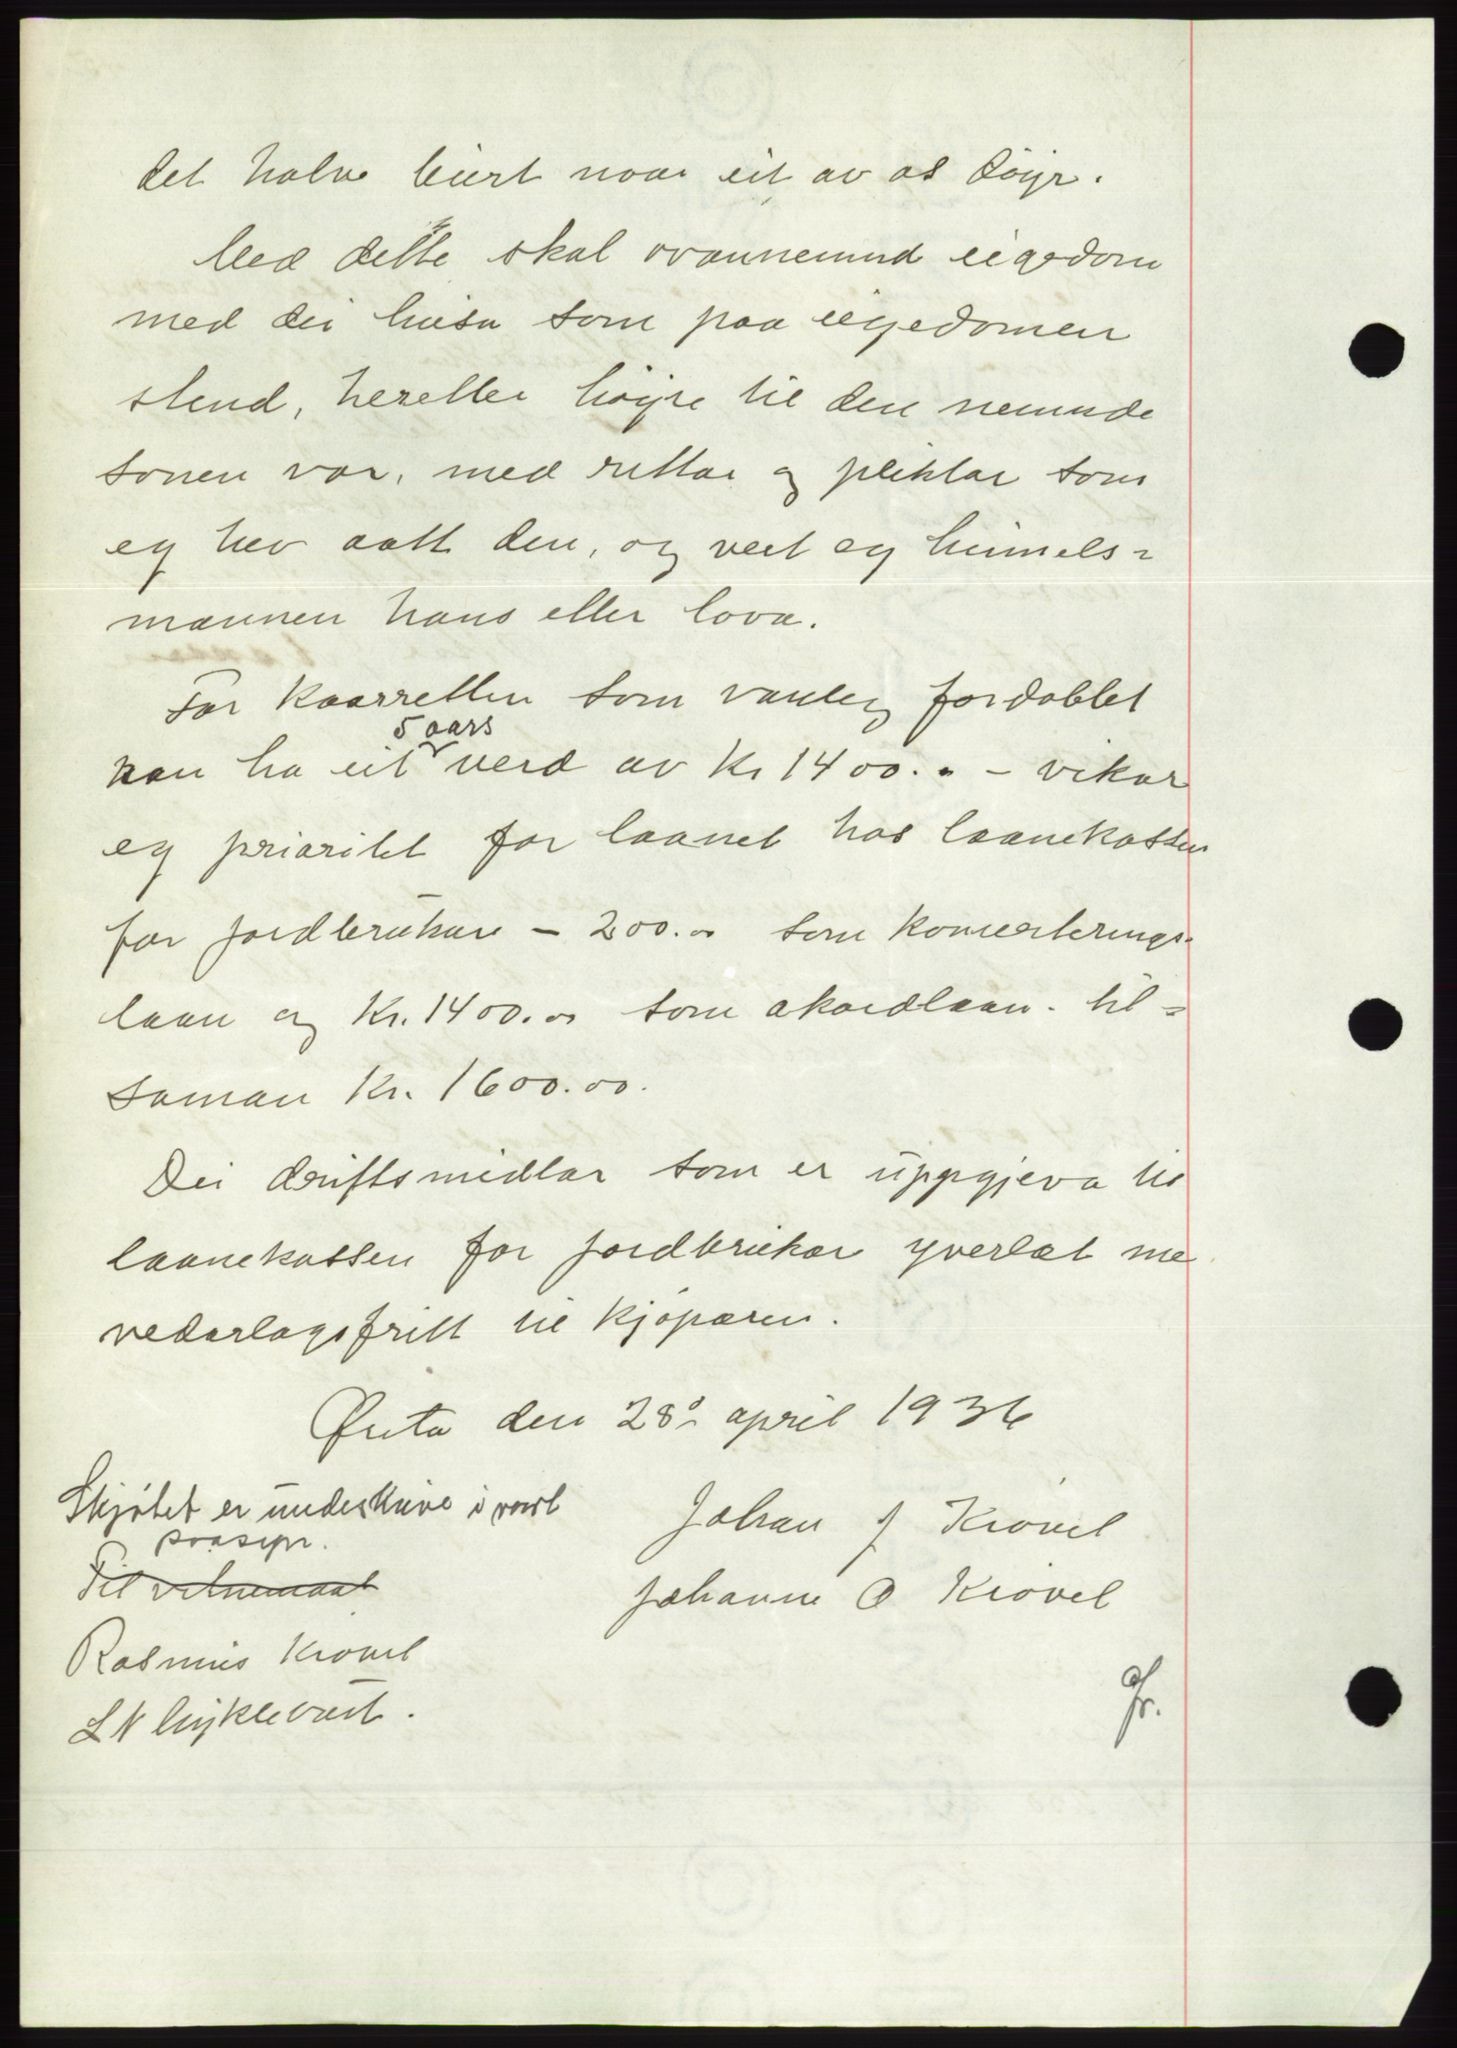 det halve burt naar eit av os döyr.
Med dette skal ovannemnd eigedom
med dei husa som paa eigedomen
stend, heretter höyre til den nemnde
sonen vor, med rettar og pliktar som
eg hev aatt den, og vert eg heimels-
mannen hans etter lova.
For kaarretten som vanleg fordoblet
5 aars
kan ha eit verd av Kr 1400.- - vikar
eg prioritet for laanet hos laanekassen
for jordbrukare - 200.00 som konverterings-
laan og Kr. 1400.00 som akordlaan. til-
saman Kr. 1600.00.
Dei driftsmidlar som er uppgjeva til
laanekassen for jordbrukar yverlæt me
vedarlagsfritt til kjöparen.
Ørsta den 28 april 1936
Skjøtet er underskrive i vort
paasyn.
Til vitnemaal
Johan J Krövel
Johanne O Krövel
Rasmus Krövel
L N Myklebust.
Jr.